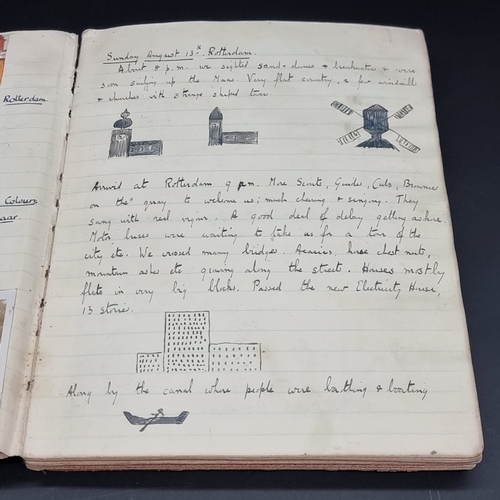 Rotterdam
Colours
aar.
Sunday August 13th. Rotterdam.
About 8 p.m. we sighted sand-dunes & breakwaters & were
soon sailing up the Maas. Very flat country, a few windmills
& churches with strange shaped towers.
Arrived at Rotterdam 9 p.m. More Scouts, Guides, Cubs, Brownies
on the quay to welcome us; much cheering & singing. They
sang with real vigour. A good deal of delay getting ashore.
Motor buses were waiting to take us for a tour of the
city etc. We crossed many bridges. Acacias, horse chest nuts,
mountain ashes etc growing along the streets. Houses mostly
flats in very big blocks. Passed the new Electricity House,
13 stories.
Along by the canal where people were bathing & boating